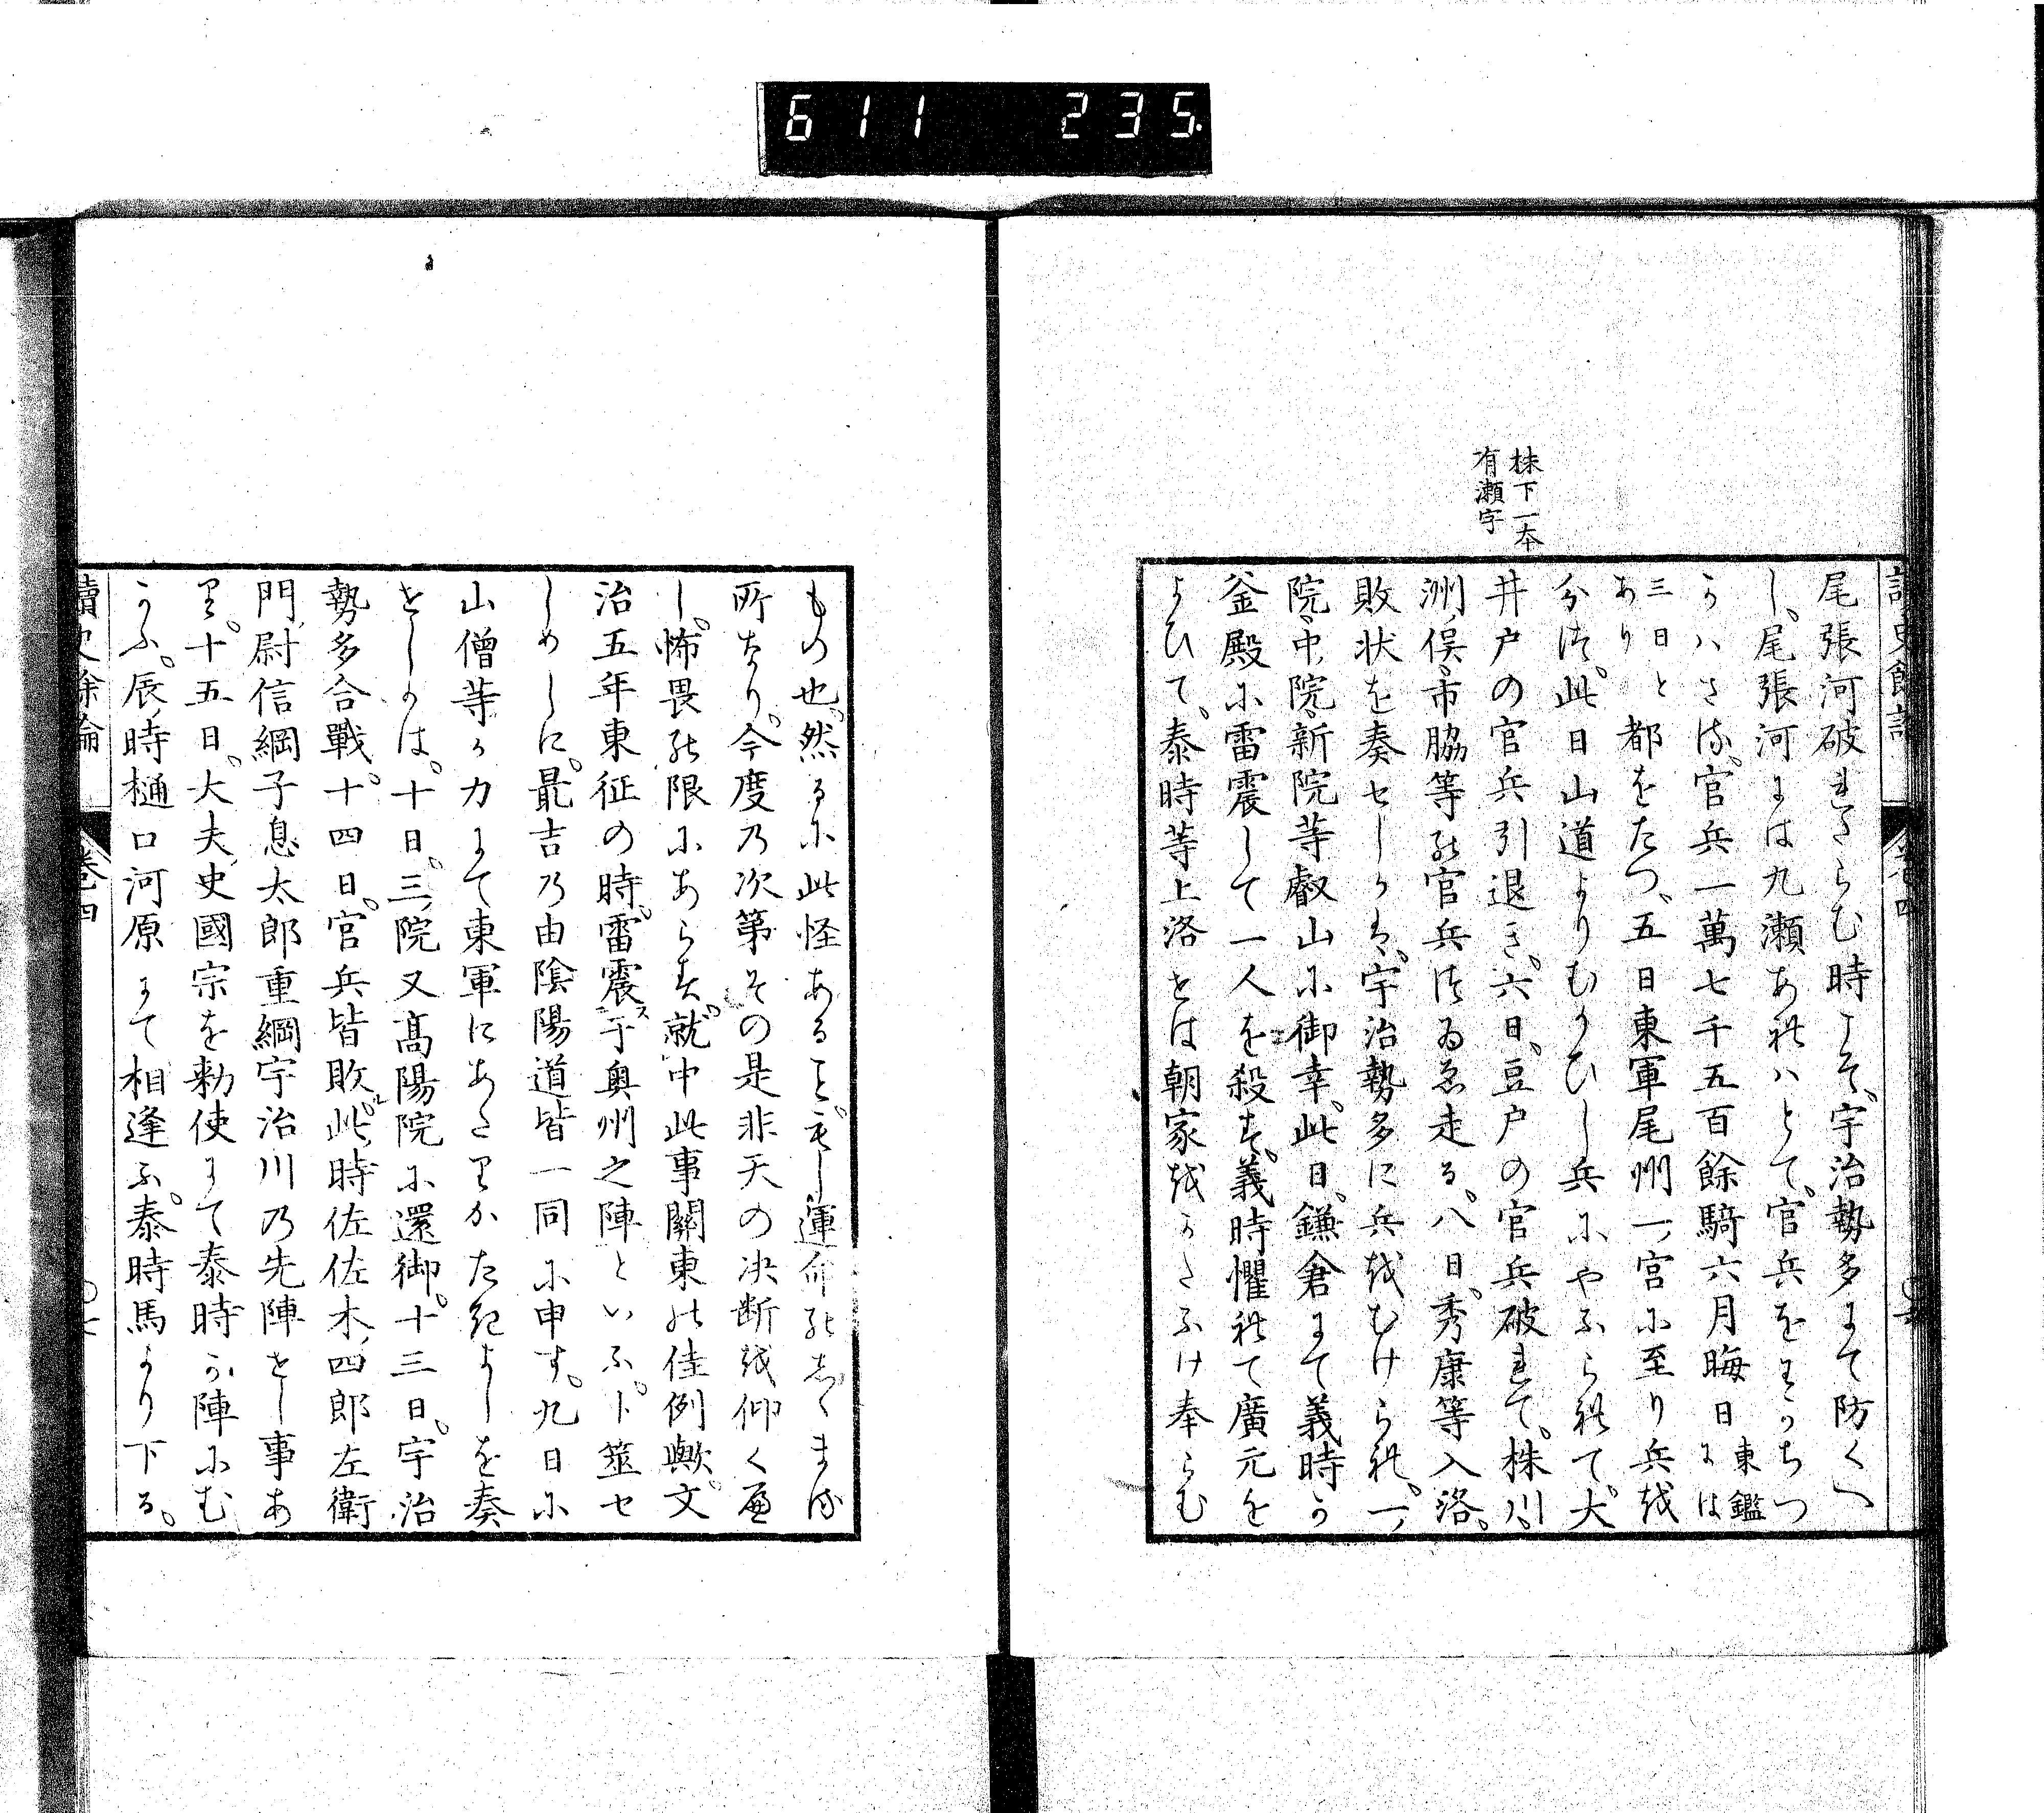 611 235
株下一本
有瀬字
尾張河破れたらむ時こそ、宇治勢多にて防くへ
し、尾張河には九瀬あれハとて、官兵をわかちつ
かハさる、官兵一萬七千五百餘騎六月晦日東鑑には
三日とあり都をたつ、五日東軍尾州一宮に至り兵を
分つ、此日山道よりむかひし兵にやふられて、大
井戸の官兵引退き、六日、豆戸の官兵破れて、株川、
洲俣、市脇等の官兵つゐゑ走る、八日、秀康等入洛、
敗状を奏せしかは、宇治勢多に兵をむけられ、一
院、中院、新院等叡山に御幸、此日、鎌倉にて義時か
釜殿に雷震して一人を殺す、義時懼れて廣元を
よひて、泰時等上洛せは朝家をかたふけ奉らむ
もの也、然るに此怪あること、もし運命のちゝまる
所なり、今度の次第その是非天の决断を仰く處
し、怖畏の限にあらす、就中此事關東の佳例歟、文
治五年東征の時、雷震ス于奥州之陣といふ、卜筮せ
しめしに、最吉の由陰陽道皆一同に申す、九日に
山僧等か力にて東軍にあたりかたきよしを奏
せしかは、十日、三院又高陽院に還御、十三日、宇治
勢多合戰、十四日、官兵皆敗ル、此時佐佐木四郎左衛
門尉信綱子息太郎重綱宇治川の先陣せし事あ
り、十五日、大夫史國宗を勅使にて泰時か陣にむ
かふ、辰時樋口河原にて相逢ふ、泰時馬より下る、
讀史餘論 卷四